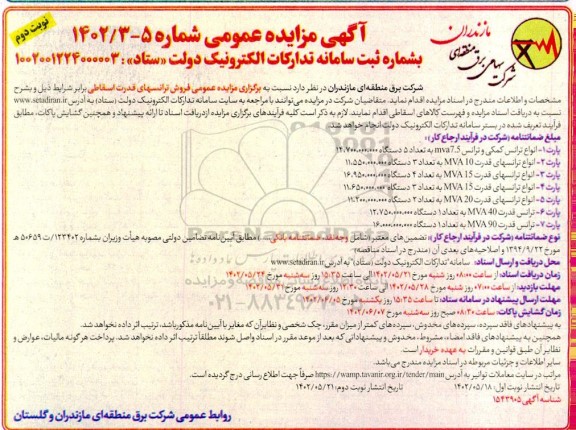 نوبت دوم
آگهی مزایده عمومی شماره ۵-۱۴۰۲/۳
بشماره ثبت سامانه تدارکات الکترونیک دولت «ستاد»: ۱۰۰۲۰۰۱۲۲۴۰۰۰۰۰۳
شرکت سهامی برق منطقه‌ای مازندران
شرکت برق منطقه‌ای مازندران در نظر دارد نسبت به برگزاری مزایده عمومی فروش ترانسهای قدرت اسقاطی برابر شرایط ذیل و بشرح
مشخصات و اطلاعات مندرج در اسناد مزایده اقدام نماید. متقاضیان شرکت در مزایده می‌توانند با مراجعه به سایت سامانه تدارکات الکترونیک دولت (ستاد) به آدرس www.setadiran.ir
نسبت به دریافت اسناد مزایده و فهرست کالاهای اسقاطی اقدام نمایند. لازم به ذکر است کلیه فرآیندهای برگزاری مزایده ازدریافت اسناد تا ارائه پیشنهاد و همچنین گشایش پاکات، مطابق
فرآیند تعریف شده در بستر سامانه تدارکات الکترونیک دولت انجام خواهد شد.
مبلغ ضمانتنامه (شرکت در فرآیند ارجاع کار):
پارت ۱- انواع ترانس کمکی و ترانس mva7.5 به تعداد ۵ دستگاه ۱۴.۷۰۰.۰۰۰.۰۰۰
پارت ۲- انواع ترانسهای قدرت MVA 10 به تعداد ۳ دستگاه ۱۱.۵۵۰.۰۰۰.۰۰۰
پارت ۳- انواع ترانسهای قدرت MVA 15 به تعداد ۴ دستگاه ۱۶.۹۵۰.۰۰۰.۰۰۰
پارت ۴- انواع ترانسهای قدرت MVA 15 به تعداد ۳ دستگاه ۱۱.۶۵۰.۰۰۰.۰۰۰
پارت ۵- انواع ترانسهای قدرت MVA 20 به تعداد ۲ دستگاه ۱۱.۲۰۰.۰۰۰.۰۰۰
پارت ۶- ترانس قدرت MVA 40 به تعداد ۱ دستگاه ۱۳.۷۵۰.۰۰۰.۰۰۰
پارت ۷- ترانس قدرت MVA 90 به تعداد ۱ دستگاه ۱۶.۰۰۰.۰۰۰.۰۰۰
نوع ضمانتنامه (شرکت در فرآیند ارجاع کار): تضمین‌های معتبر (شامل وجه نقد، ضمانتنامه بانکی، ...) مطابق آیین‌نامه تضامین دولتی مصوبه هیأت وزیران بشماره ۱۲۳۴۰۲/ت ۵۰۶۵۹ هـ
مورخ ۱۳۹۴/۹/۲۲ و اصلاحیه‌های بعدی آن (مندرج در اسناد مناقصه)
محل دریافت و ارسال اسناد: سامانه "تدارکات الکترونیک دولت (ستاد)" به آدرس www.setadiran.ir
زمان دریافت اسناد: از ساعت ۰۸:۰۰ روز شنبه مورخ ۱۴۰۲/۰۵/۲۱ الی ساعت ۱۵:۳۵ روز سه‌شنبه مورخ ۱۴۰۲/۰۵/۲۴
مهلت بازدید: از ساعت ۰۷:۰۰ روز شنبه مورخ ۱۴۰۲/۰۵/۲۸ الی ساعت ۱۲:۳۰ روز سه‌شنبه مورخ ۱۴۰۲/۰۵/۳۱
مهلت ارسال پیشنهاد در سامانه ستاد: تا ساعت ۱۵:۳۵ روز یکشنبه مورخ ۱۴۰۲/۰۶/۰۵
زمان گشایش پاکات: ساعت ۰۸:۳۰ صبح روز سه‌شنبه مورخ ۱۴۰۲/۰۶/۰۷
به پیشنهادهای فاقد سپرده، سپرده‌های مخدوش، سپرده‌های کمتر از میزان مقرر، چک شخصی و نظایر آن که مغایر با آیین‌نامه مذکور باشد، ترتیب اثر داده نخواهد شد.
همچنین به پیشنهادهای فاقد امضاء، مشروط، مخدوش و پیشنهاداتی که بعد از موعد مقرر در اسناد واصل شوند مطلقاً ترتیب اثر داده نخواهد شد. پرداخت هر گونه مالیات، عوارض و
نظایر آن طبق قوانین و مقررات به عهده خریدار است.
سایر اطلاعات و جزئیات مربوطه در اسناد مزایده مندرج می‌باشد.
مراتب در سایت معاملات توانیر به آدرس https://wamp.tavanir.org.ir/tender/main صرفاً جهت اطلاع رسانی درج گردیده است.
تاریخ انتشار نوبت اول: ۱۴۰۲/۰۵/۱۸ تاریخ انتشار نوبت دوم: ۱۴۰۲/۰۵/۲۱
شناسه آگهی ۱۵۴۳۹۰۵
روابط عمومی شرکت برق منطقه‌ای مازندران و گلستان
ParsNamadData
۰۲۱-۸۸۳۴۹۶۷۰